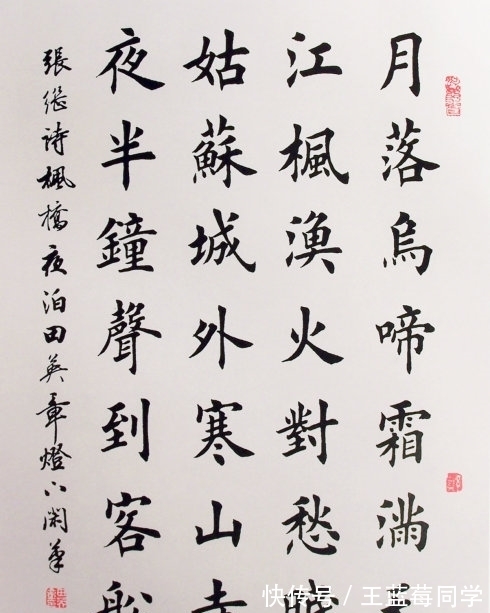 月落烏啼霜滿
江楓漁火對愁
姑蘇城外寒山寺
夜半鐘聲到客船
張継詩楓橋夜泊田英章燈下閑筆
快传号 / 王蓝莓同学